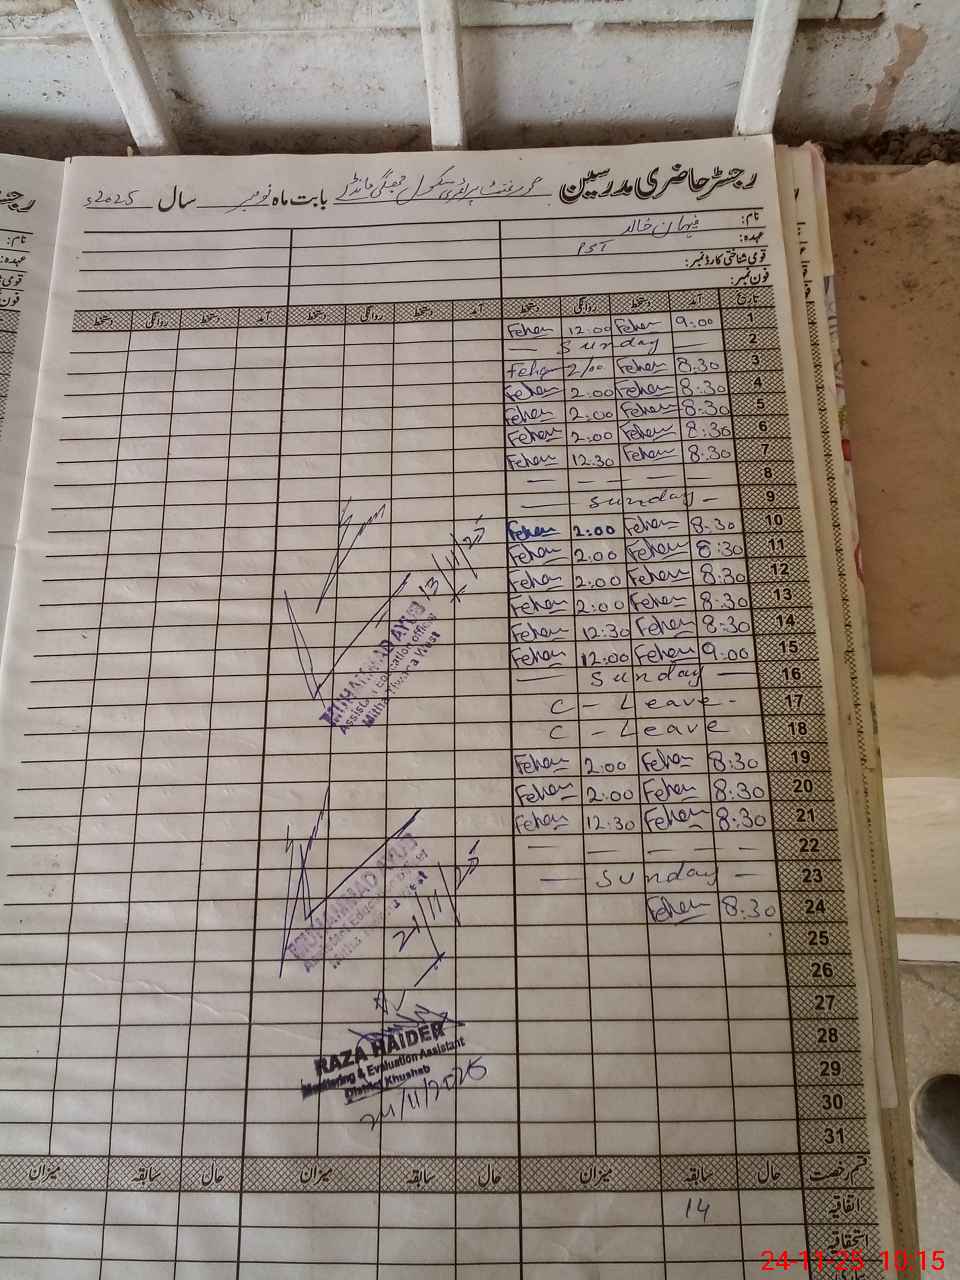 رجسٹر حاضری مدرسین گورنمنٹ پرائمری سکول بابت ماہ نومبر سال 2025ء
نام: فیہان خالد
عہدہ: PST
قومی شناختی کارڈ نمبر:
فون نمبر:
تاریخ آمد دستخط روانگی دستخط آمد دستخط روانگی دستخط آمد دستخط روانگی دستخط
1 9:00 Fehan 12:00 Fehan
2 — Sunday —
3 8:30 Fehan 2/00 Fehan
4 8:30 Fehan 2:00 Fehan
5 8:30 Fehan 2:00 Fehan
6 8:30 Fehan 2:00 Fehan
7 8:30 Fehan 12:30 Fehan
8 — — — —
9 — Sunday —
10 8:30 Fehan 2:00 Fehan
11 8:30 Fehan 2:00 Fehan
12 8:30 Fehan 2:00 Fehan
13 8:30 Fehan 2:00 Fehan
14 8:30 Fehan 12:30 Fehan
15 9:00 Fehan 12:00 Fehan
16 — Sunday —
17 C - Leave -
18 C - Leave
19 8:30 Fehan 2:00 Fehan
20 8:30 Fehan 2:00 Fehan
21 8:30 Fehan 12:30 Fehan
22 — — — —
23 — Sunday —
24 8:30 Fehan
25
26
27
28
29
30
31
13/11/25
MUHAMMAD AYUB
Assistt Education officer
Mitha Tiwana West
21/11/25
MUHAMMAD AYUB
Assistt Education officer
Mitha Tiwana West
RAZA HAIDER
Monitoring & Evaluation Assistant
District Khushab
24/11/2025
قسم رخصت حال سابقہ میزان حال سابقہ میزان حال سابقہ میزان
اتفاقیہ 14
استحقاقیہ
رجسٹر
نام:
عہدہ:
24-11-25 10:15